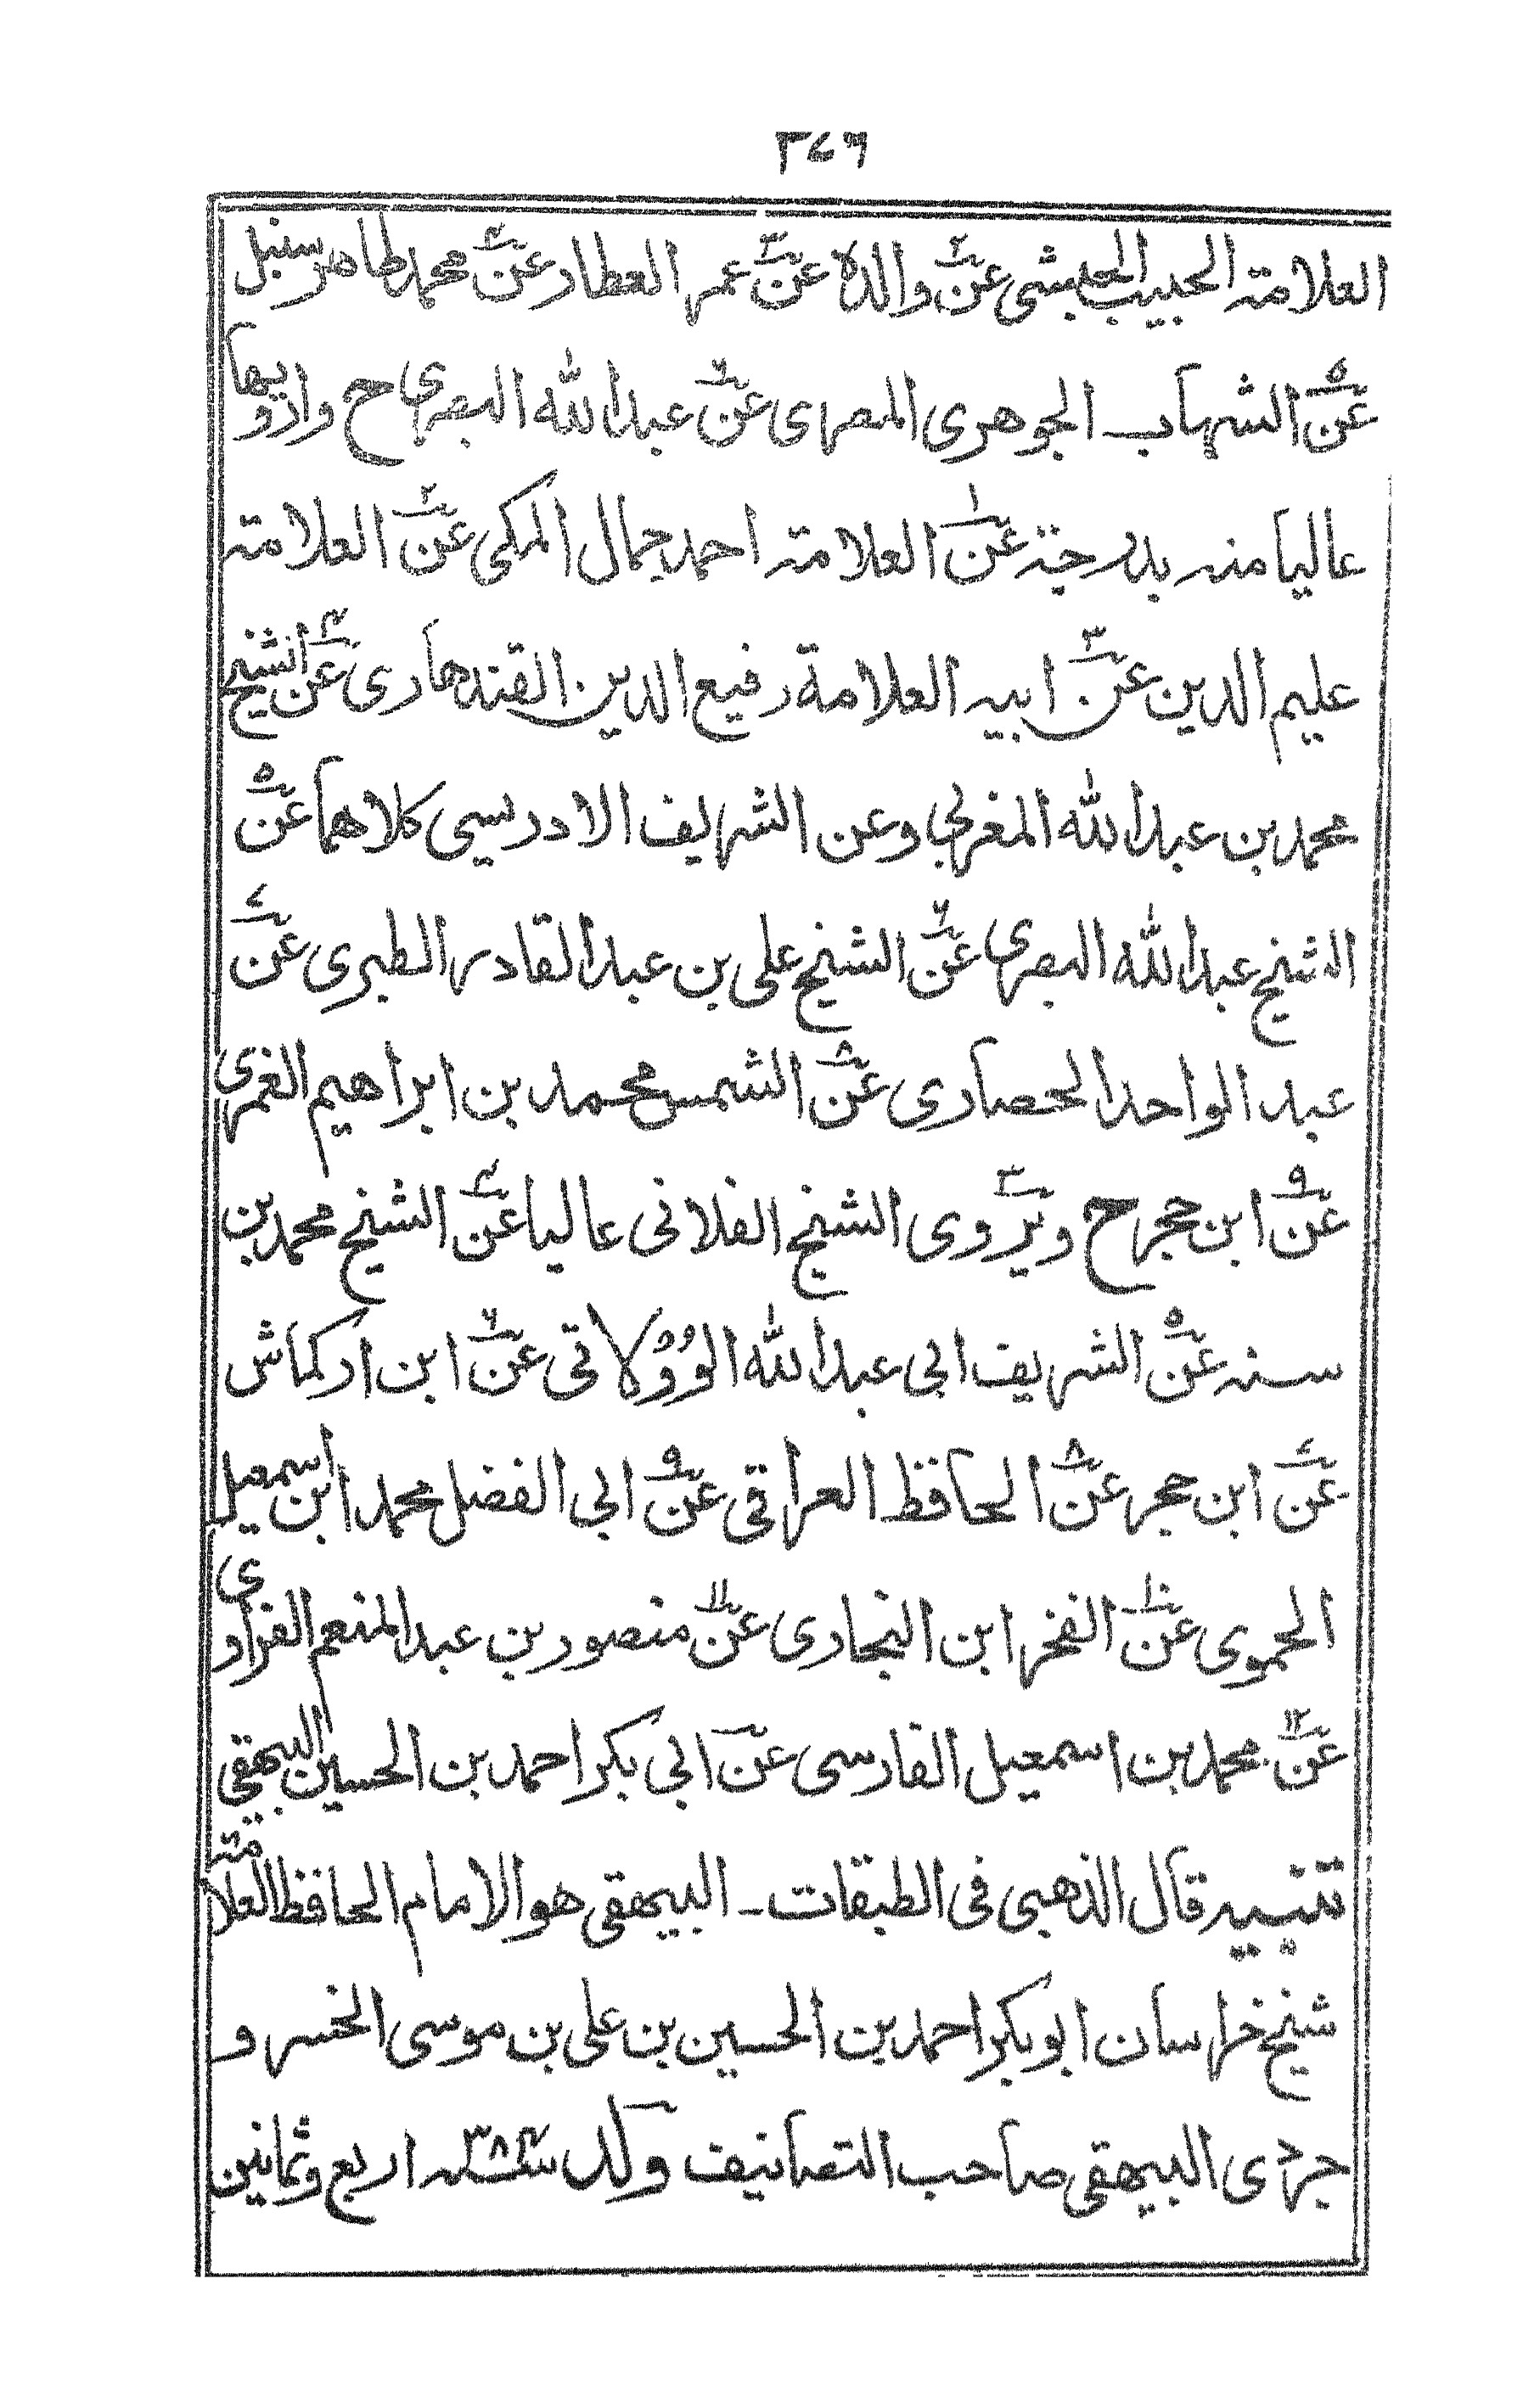 ٣٤٦
العلامة الحبيب الحبشي عن٢ والده عن٣ عمر العطار عن٤ محمد طاهر سنبل
عن٥ الشهاب الجوهري المصري عن٦ عبد الله البصري ح وارويها
عاليا منه بدرجة عن١ العلامة احمد جمال المكي عن٢ العلامة
عليم الدين عن٣ ابيه العلامة رفيع الدين القندهاري عن٤ الشيخ
محمد بن عبد الله المغربي وعن الشريف الادريسي كلاهما عن٥
الشيخ عبد الله البصري عن٦ الشيخ علي بن عبد القادر الطبري عن٧
عبد الواحد الحصاري عن٨ الشمس محمد بن ابراهيم الغمري
عن٩ ابن حجر ح ويروي٣ الشيخ الفلاني عاليا عن٤ الشيخ محمد بن
سنه عن٥ الشريف ابي عبد الله الوولاتي عن٦ ابن اركماش
عن٧ ابن حجر عن٨ الحافظ العراقي عن٩ ابي الفضل محمد ابن اسمعيل
الحموي عن١٠ الفخر ابن البخاري عن١١ منصور بن عبد المنعم الفراوي
عن١٢ محمد بن اسمعيل الفارسي عن ابي بكر احمد بن الحسين البيهقي
تنبيه قال الذهبي في الطبقات ـ البيهقي هو الامام الحافظ العلامة
شيخ خراسان ابو بكر احمد بن الحسين بن علي بن موسى الخسرو
جردي البيهقي صاحب التصانيف ولد سنة ٣٨٤ اربع وثمانين